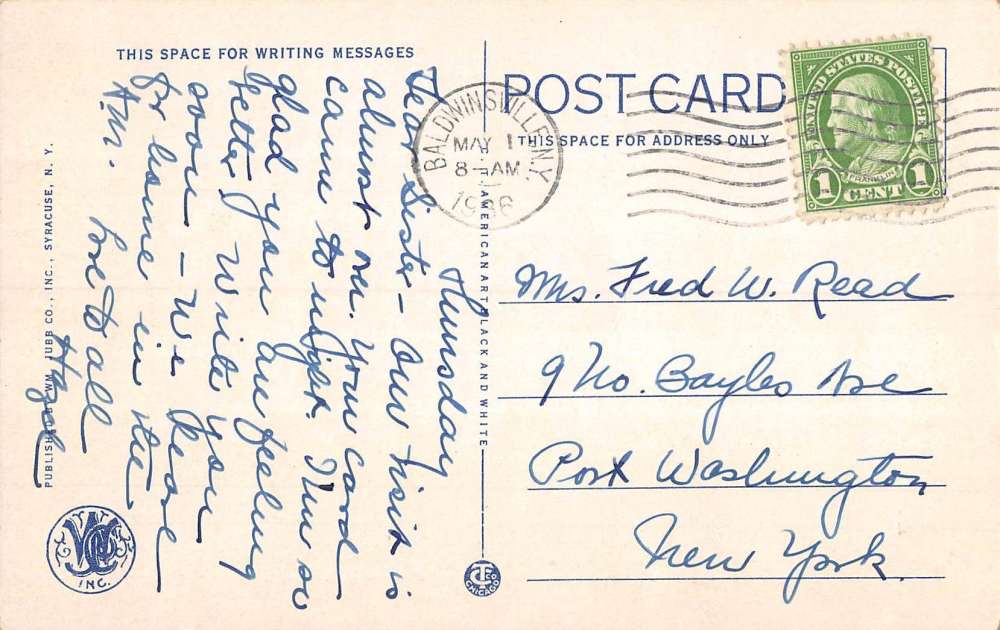 THIS SPACE FOR WRITING MESSAGES
POST CARD
THIS SPACE FOR ADDRESS ONLY
BALDWINSVILLE N.Y.
MAY 1
8-AM
1936
UNITED STATES POSTAGE
FRANKLIN
1 CENT 1
Thursday
Dear Sister - Our visit is
almost over. Your card
came to night. I'm so
glad you are feeling
better. Write you
soon - We leave
for home in the
A.M.
Love to all
Hazel
Mrs. Fred W. Read
9 No. Bayles Ave
Port Washington
New York.
PUBLISHED BY WM. JUBB CO., INC., SYRACUSE, N. Y.
C.T. AMERICAN ART BLACK AND WHITE
INC.
CT CO
CHICAGO